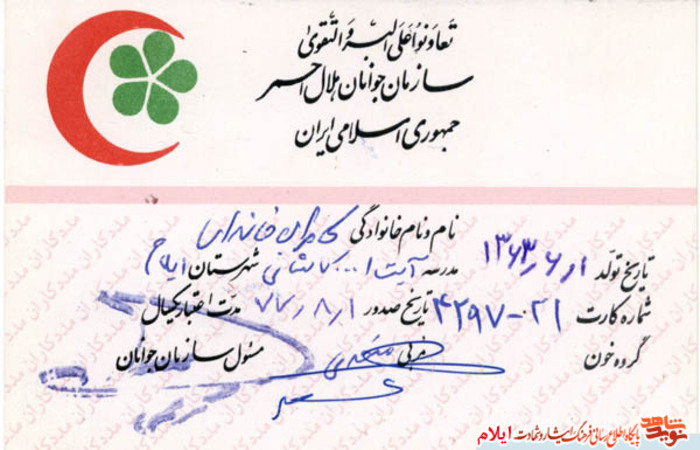 تعاونوا علی البر و التقوی
سازمان جوانان هلال احمر
جمهوری اسلامی ایران
نام و نام خانوادگی کامران
تاریخ تولد ۱۳۶۳٫۶٫۱ مدرسه آیت ا... کاشانی شهرستان ایلام
شماره کارت ۴۲۹۷-۰۲۱ تاریخ صدور ۷۷٫۸٫۱ مدت اعتبار یکسال
گروه خون مربی مسئول سازمان جوانان
نوید شاهد
پایگاه اطلاع رسانی فرهنگ ایثار و شهادت ایلام